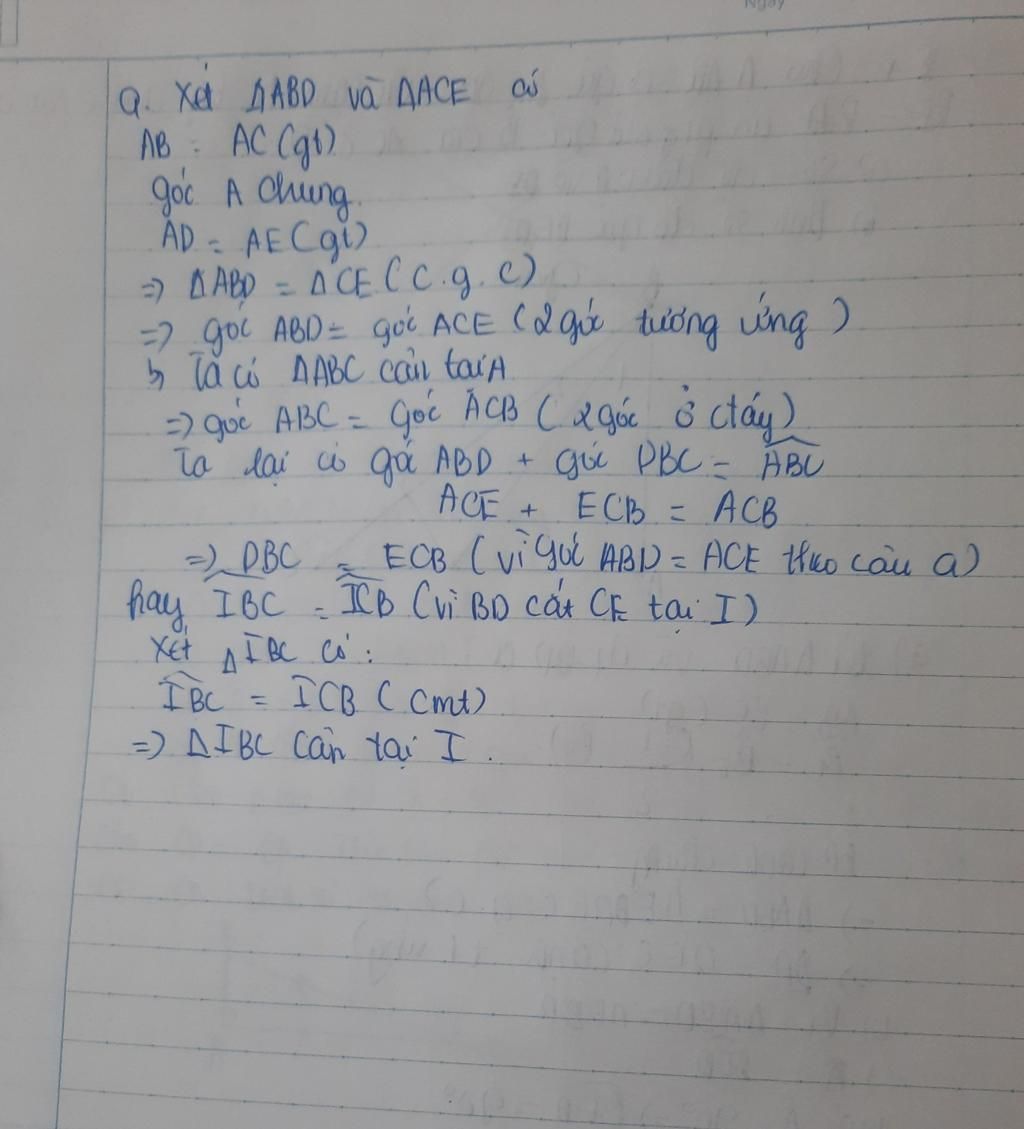 Ngày
a. Xét ΔABD và ΔACE có
AB = AC (gt)
góc A chung.
AD = AE (gt)
=> ΔABD = ΔCE (c.g.c)
=> góc ABD = góc ACE (2 góc tương ứng)
b, Ta có ΔABC cân tại A
=> góc ABC = góc ACB (2 góc ở đáy)
Ta lại có góc ABD + góc DBC = ABC
ACE + ECB = ACB
=> DBC = ECB (vì góc ABD = ACE theo câu a)
hay IBC = ICB (vì BD cắt CE tại I)
Xét ΔIBC có:
IBC = ICB (cmt)
=> ΔIBC cân tại I.